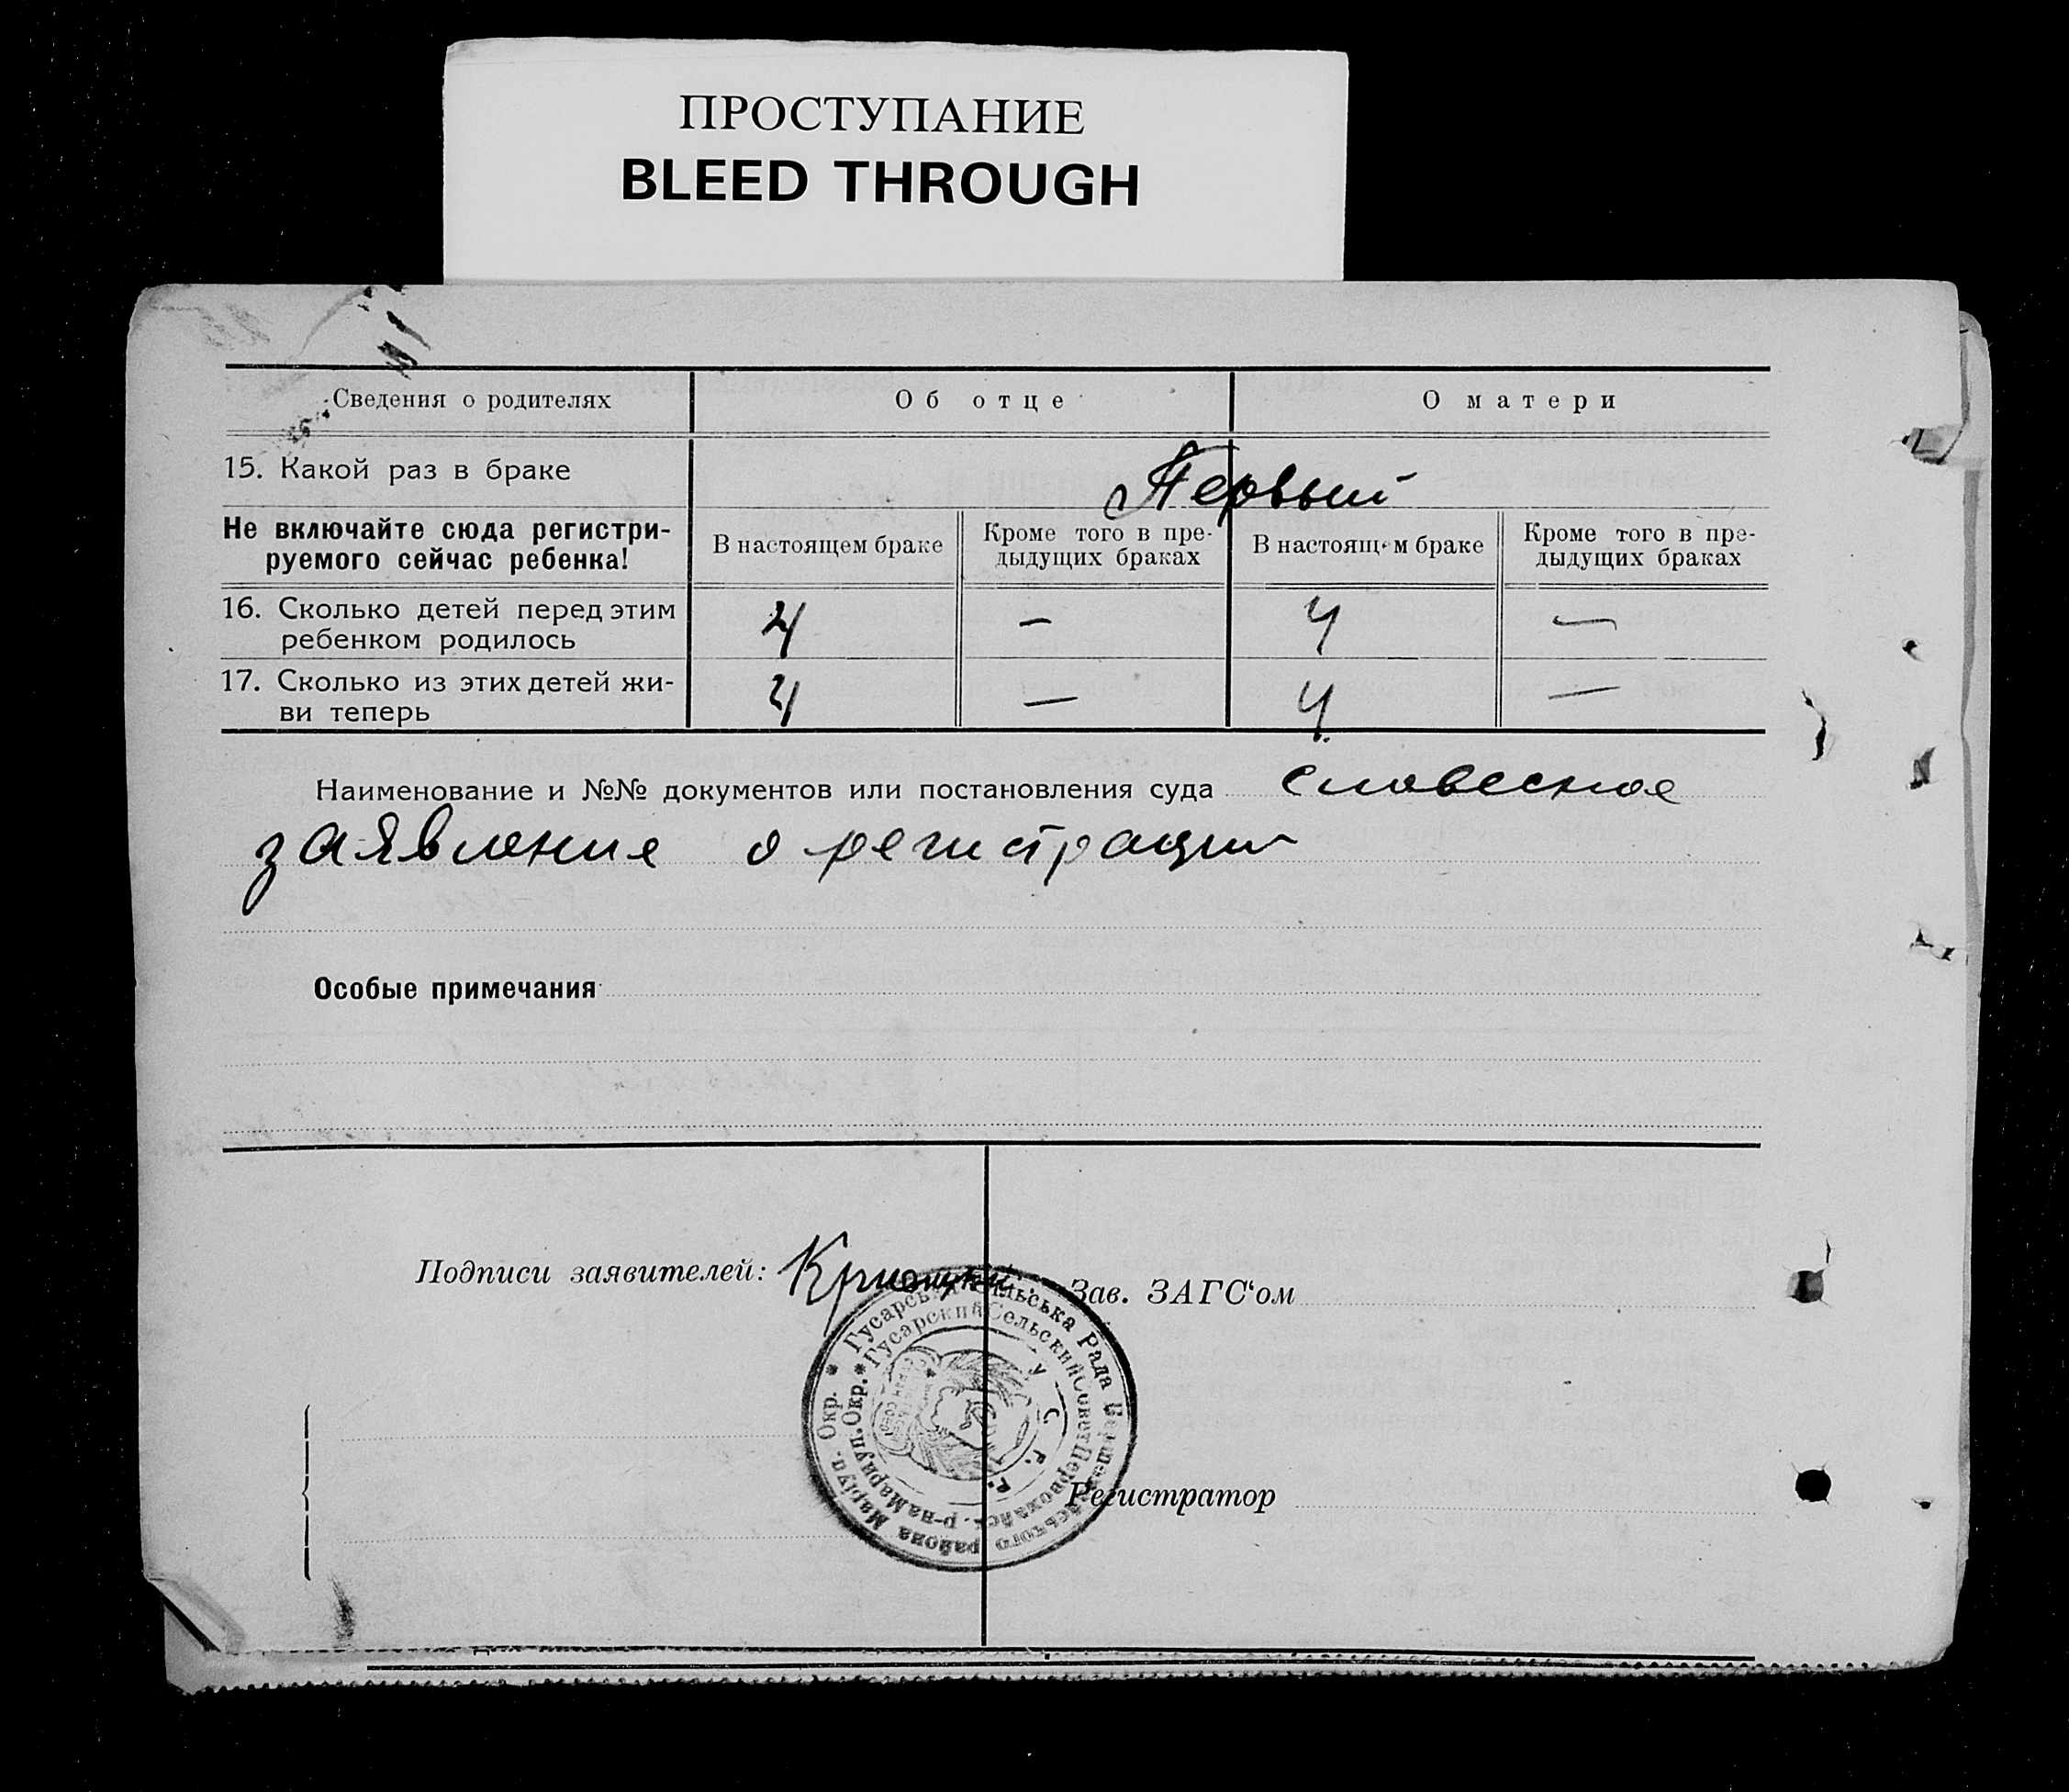 ПРОСТУПАНИЕ
BLEED THROUGH
Сведения о родителях Об отце О матери
15. Какой раз в браке Первый
Не включайте сюда регистри-
руемого сейчас ребенка!
В настоящем браке
Кроме того в пре-
дыдущих браках
В настоящем браке
Кроме того в пре-
дыдущих браках
16. Сколько детей перед этим
ребенком родилось 4 — 4 —
17. Сколько из этих детей жи-
ви теперь 4 — 4 —
Наименование и №№ документов или постановления суда словесное
заявление о регистрации
Особые примечания
Подписи заявителей:
Зав. ЗАГС‘ом
Гусарська Сільська Рада района Маріуп. Окр. *
Гусарский Сельский Совет Первомайск. р-на Мариуп. Окр. *
У. С. Р. Р.
Регистратор